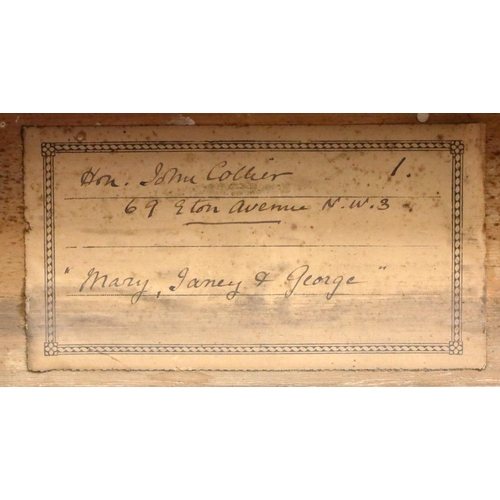 Hon. John Collier 1.
69 Eton Avenue N.W.3
"Mary, Janey & George"